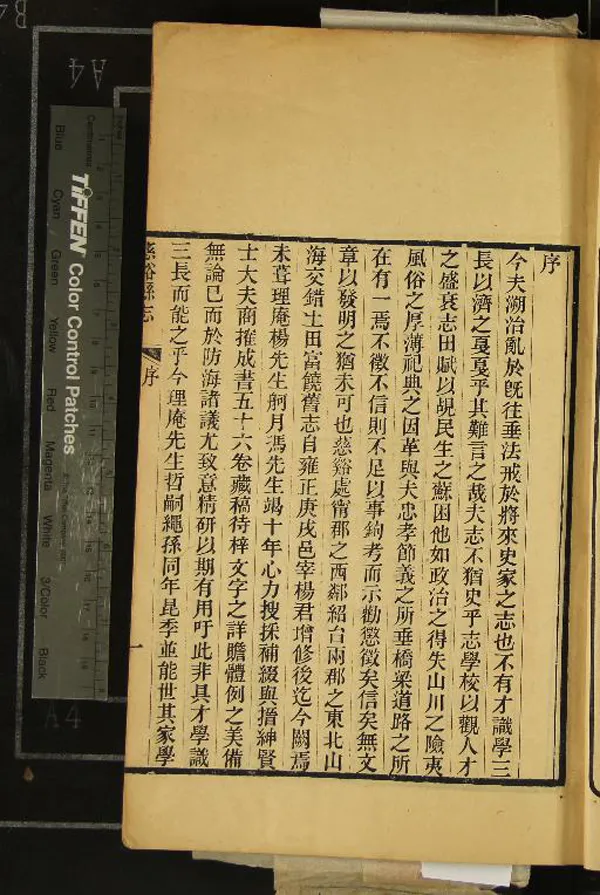 序
今夫溯治亂於旣往垂法戒於將來史家之志也不有才識學三
長以濟之戛戛乎其難言之哉夫志不猶史乎志學校以觀人才
之盛衰志田賦以覘民生之蘇困他如政治之得失山川之險夷
風俗之厚薄祀典之因革與夫忠孝節義之所垂橋梁道路之所
在有一焉不徵不信則不足以事鉤考而示勸懲徵矣信矣無文
章以發明之猶未可也慈谿處甯郡之西鄰紹台兩郡之東北山
海交錯土田富饒舊志自雍正庚戌邑宰楊君增修後迄今闕焉
未葺理庵楊先生舸月馮先生竭十年心力搜採補綴與搢紳賢
士大夫商搉成書五十六卷藏稿待梓文字之詳贍體例之美備
無論已而於防海諸議尤致意精研以期有用吁此非具才學識
三長而能之乎今理庵先生哲嗣繩孫同年昆季並能世其家學
慈谿縣志
序
一
A4
A4
TIFFEN Color Control Patches
Centimetres
Blue
Cyan
Green
Yellow
Red
Magenta
White
3/Color
Black